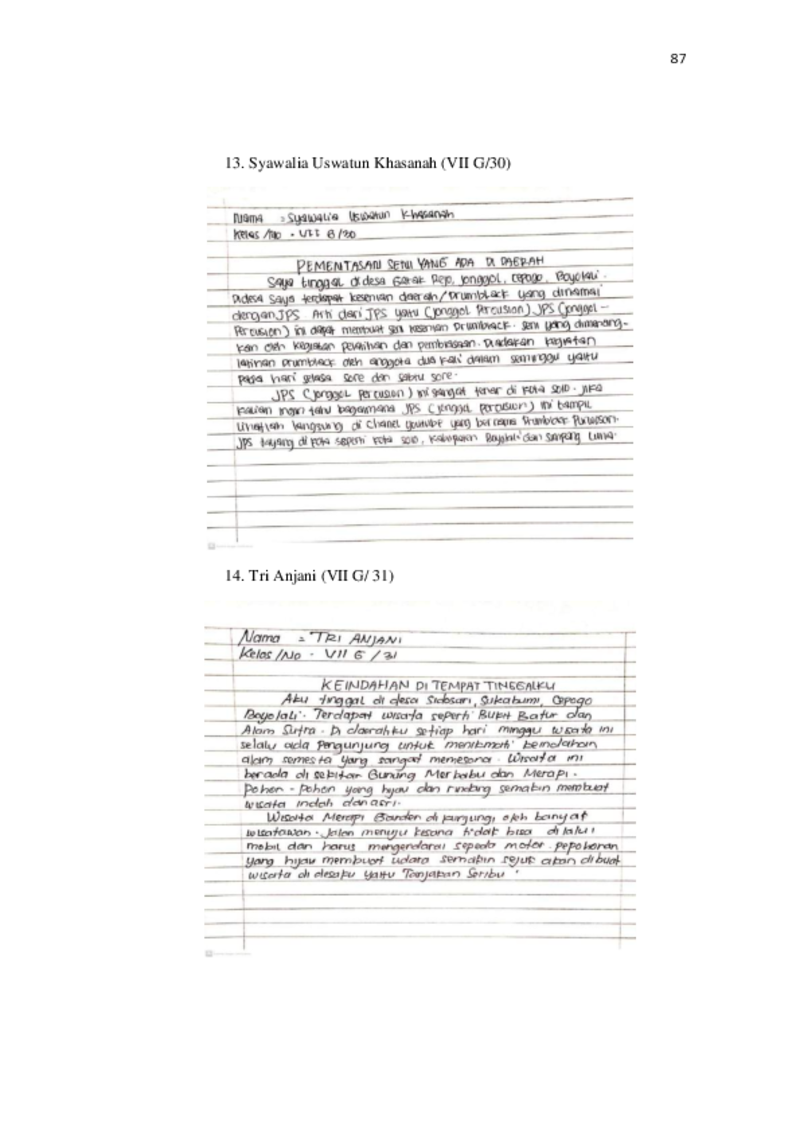 87
13. Syawalia Uswatun Khasanah (VII G/30)
Nama : Syawalia Uswatun Khasanah
Kelas /No : VII G/30
PEMENTASAN SENI YANG ADA DI DAERAH
Saya tinggal di desa Rejo, Jonggol, Cepogo, Boyolali.
Didesa Saya terdapat kesenian daerah/Drumblack yang dinamai
dengan JPS Arti dari JPS yaitu (Jonggol Percusion). JPS (Jonggol-
Percusion) ini dapat membuat seni kesenian Drumblack. seni yang
kan oleh kegiatan pelatihan dan pembiasaan. Diadakan kegiatan
latihan Drumblack oleh anggota dua kali dalam seminggu yaitu
pada hari selasa sore dan sabtu sore.
JPS (Jonggol Percusion) ini sangat tenar di kota solo. Jika
kalian ingin tahu bagaimana JPS (Jonggol Percusion) ini tampil
lihatlah langsung di Chanel youtube yang bernama Drumblack
JPS tayang di kota seperti kota solo, Kabupaten Boyolali dan Simpang Lima.
14. Tri Anjani (VII G/ 31)
Nama : TRI ANJANI
Kelas /No : VII G /31
KEINDAHAN DI TEMPAT TINGGALKU
Aku tinggal di desa Sidosari, Sukabumi, Cepogo
Boyolali. Terdapat wisata seperti Bukit Batur dan
Alam Sutra. Di daerahku setiap hari minggu wisata ini
selalu ada pengunjung untuk menikmati keindahan
alam semesta yang sangat memesona. Wisata ini
berada di sekitar Gunung Merbabu dan Merapi.
Pohon-pohon yang hijau dan rindang semakin membuat
wisata indah dan asri.
Wisata Merapi di kunjungi oleh banyak
wisatawan. Jalan menuju kesana tidak bisa di lalui
mobil dan harus mengendarai sepeda motor. pepohonan
yang hijau membuat udara semakin sejuk akan dibuat
wisata di desaku yaitu Tanjakan Seribu.